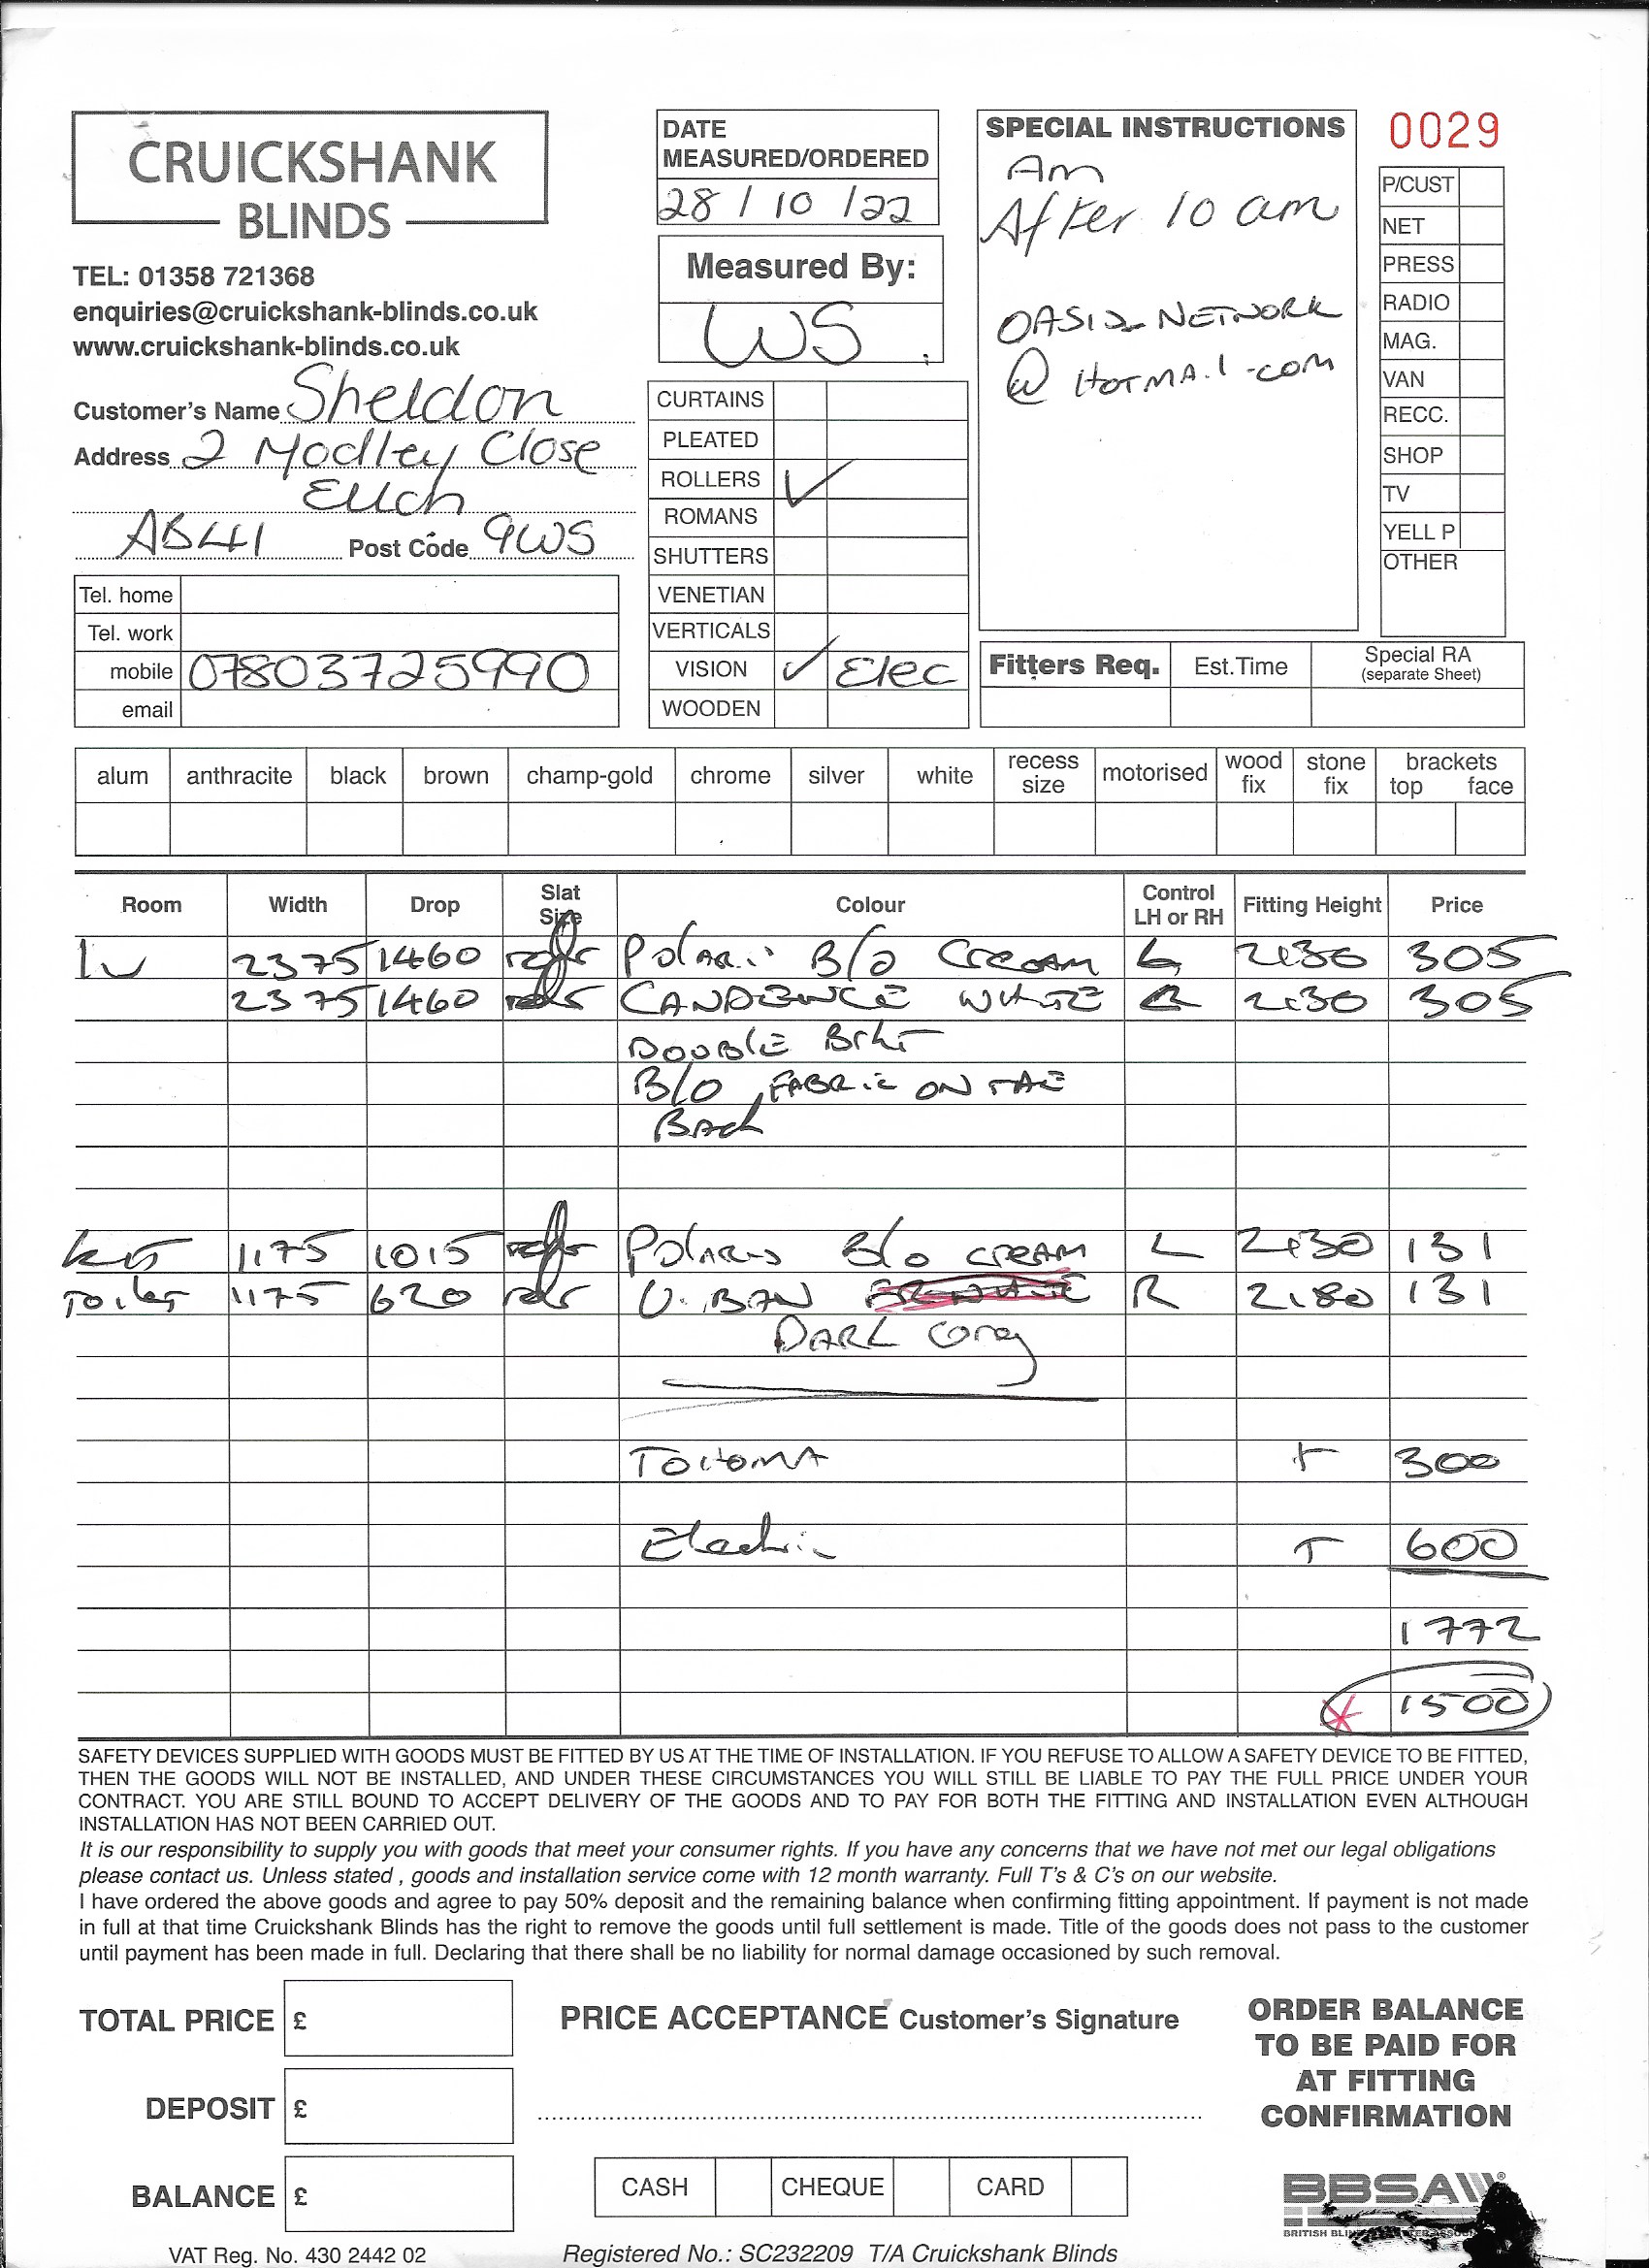 CRUICKSHANK
BLINDS
TEL: 01358 721368
enquiries@cruickshank-blinds.co.uk
www.cruickshank-blinds.co.uk
Customer's Name Sheldon
Address 2 Modley Close
Ellon
AB41 Post Code 9WS
Tel. home
Tel. work
mobile 07803725990
email
DATE
MEASURED/ORDERED
28 / 10 / 22
Measured By:
WS
CURTAINS
PLEATED
ROLLERS ✓
ROMANS
SHUTTERS
VENETIAN
VERTICALS
VISION ✓ Elec
WOODEN
SPECIAL INSTRUCTIONS
Am
After 10 am
NETWORK
@ HOTMAIL.COM
0029
P/CUST
NET
PRESS
RADIO
MAG.
VAN
RECC.
SHOP
TV
YELL P
OTHER
Fitters Req. Est.Time Special RA
(separate Sheet)
alum anthracite black brown champ-gold chrome silver white recess size motorised wood fix stone fix brackets top face
Room Width Drop Slat Size Colour Control LH or RH Fitting Height Price
Lv 2375 1460 Polaris B/O Cream L 305
2375 1460 CANDENCE WHITE R 305
DOUBLE Brkt
B/O FABRIC ON THE
Back
Kit 1175 1015 Polaris B/O CREAM L 131
Toilet 1175 620 URBAN R 131
DARK Grey
+ 300
Electric + 600
1772
* 1500
SAFETY DEVICES SUPPLIED WITH GOODS MUST BE FITTED BY US AT THE TIME OF INSTALLATION. IF YOU REFUSE TO ALLOW A SAFETY DEVICE TO BE FITTED,
THEN THE GOODS WILL NOT BE INSTALLED, AND UNDER THESE CIRCUMSTANCES YOU WILL STILL BE LIABLE TO PAY THE FULL PRICE UNDER YOUR
CONTRACT. YOU ARE STILL BOUND TO ACCEPT DELIVERY OF THE GOODS AND TO PAY FOR BOTH THE FITTING AND INSTALLATION EVEN ALTHOUGH
INSTALLATION HAS NOT BEEN CARRIED OUT.
It is our responsibility to supply you with goods that meet your consumer rights. If you have any concerns that we have not met our legal obligations
please contact us. Unless stated , goods and installation service come with 12 month warranty. Full T's & C's on our website.
I have ordered the above goods and agree to pay 50% deposit and the remaining balance when confirming fitting appointment. If payment is not made
in full at that time Cruickshank Blinds has the right to remove the goods until full settlement is made. Title of the goods does not pass to the customer
until payment has been made in full. Declaring that there shall be no liability for normal damage occasioned by such removal.
TOTAL PRICE £
DEPOSIT £
BALANCE £
PRICE ACCEPTANCE Customer's Signature
CASH CHEQUE CARD
ORDER BALANCE
TO BE PAID FOR
AT FITTING
CONFIRMATION
BBSA
VAT Reg. No. 430 2442 02
Registered No.: SC232209 T/A Cruickshank Blinds